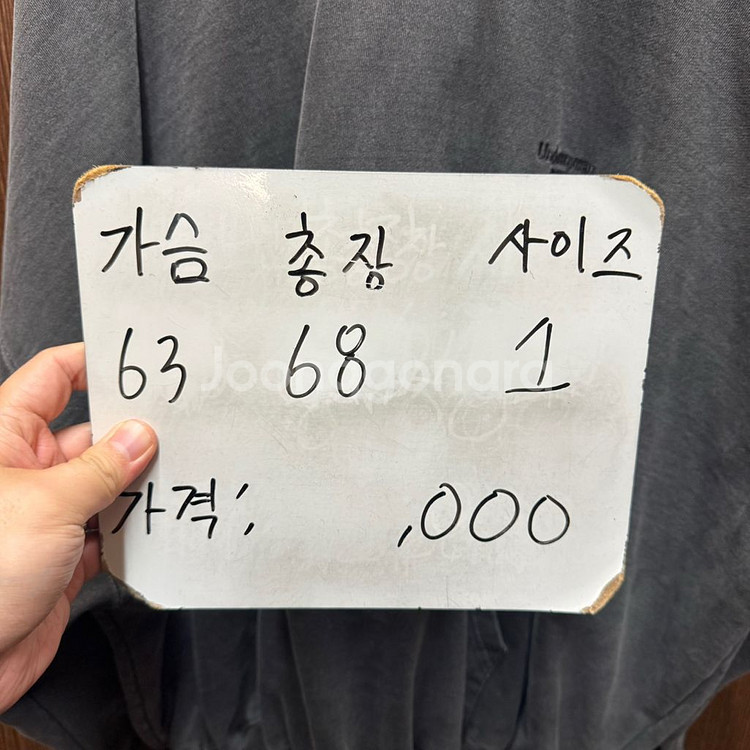 가슴 총장 사이즈
63 68 1
가격; ,000
Joonggonara